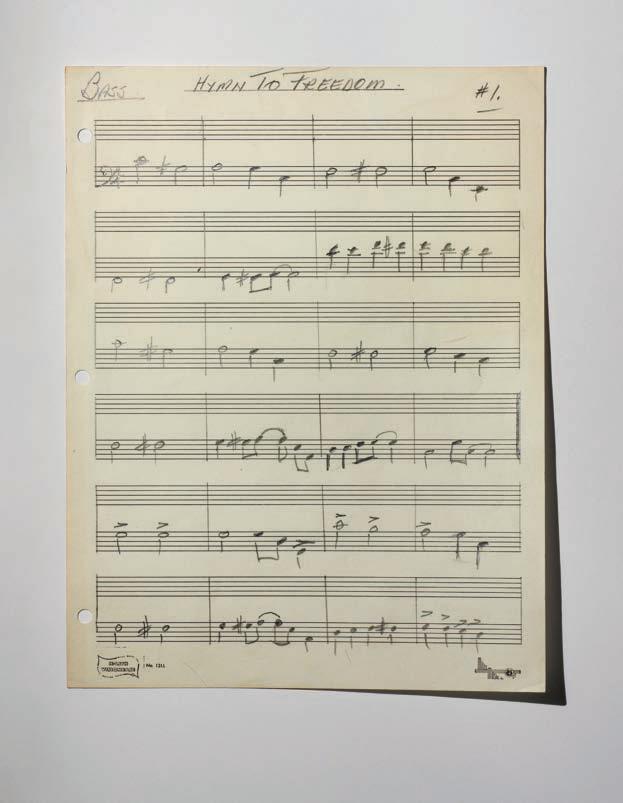 Bass HYMN TO FREEDOM. #1.
No. 1211